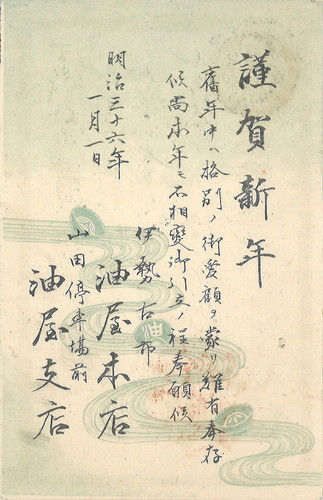 謹賀新年
舊年中ハ格別ノ御愛顧ヲ蒙リ難有奉存
候尚本年モ不相變御引立ノ程奉願候
明治三十六年
一月一日
伊勢古市
油屋本店
山田停車場前
油屋支店
油